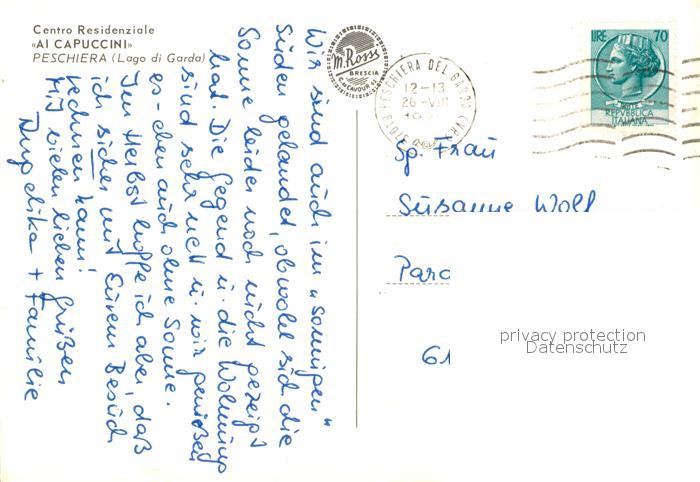 Centro Residenziale
«AI CAPUCCINI»
PESCHIERA (Lago di Garda)
Wir sind auch im „sonnigen"
Süden gelandet, obwohl sich die
Sonne leider noch nicht gezeigt
hat. Die Gegend u. die Wohnung
sind sehr nett u. wir genießen
es eben auch ohne Sonne.
Im Herbst hoffe ich aber, daß
ich sicher mit Eurem Besuch
rechnen kann!
Mit vielen lieben Grüßen
Angelika + Familie
M. Rossi
BRESCIA
C. M. CAVOUR 42
PESCHIERA DEL GARDA
12-13
26-VIII
37019
LIRE 70
REPVBBLICA
ITALIANA
Sg. Frau
Susanne Wolf
Parc
61
privacy protection
Datenschutz